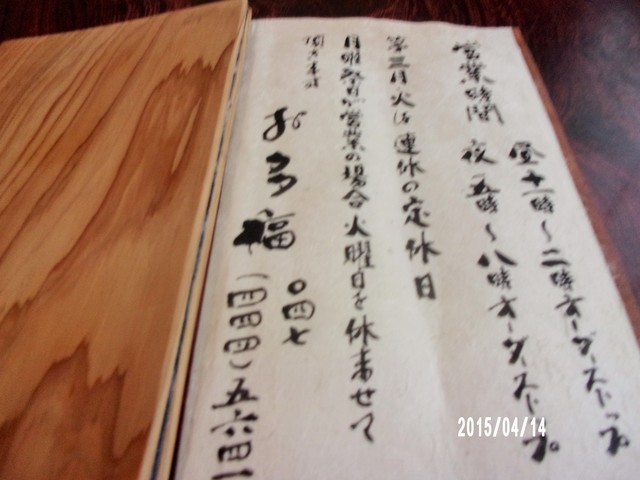 営業時間
昼 十一時～二時オーダーストップ
夜 五時～八時オーダーストップ
第三月・火は連休の定休日
月曜祭日が営業の場合火曜日を休ませて
頂きます
お多福
〇四七
2015/04/14